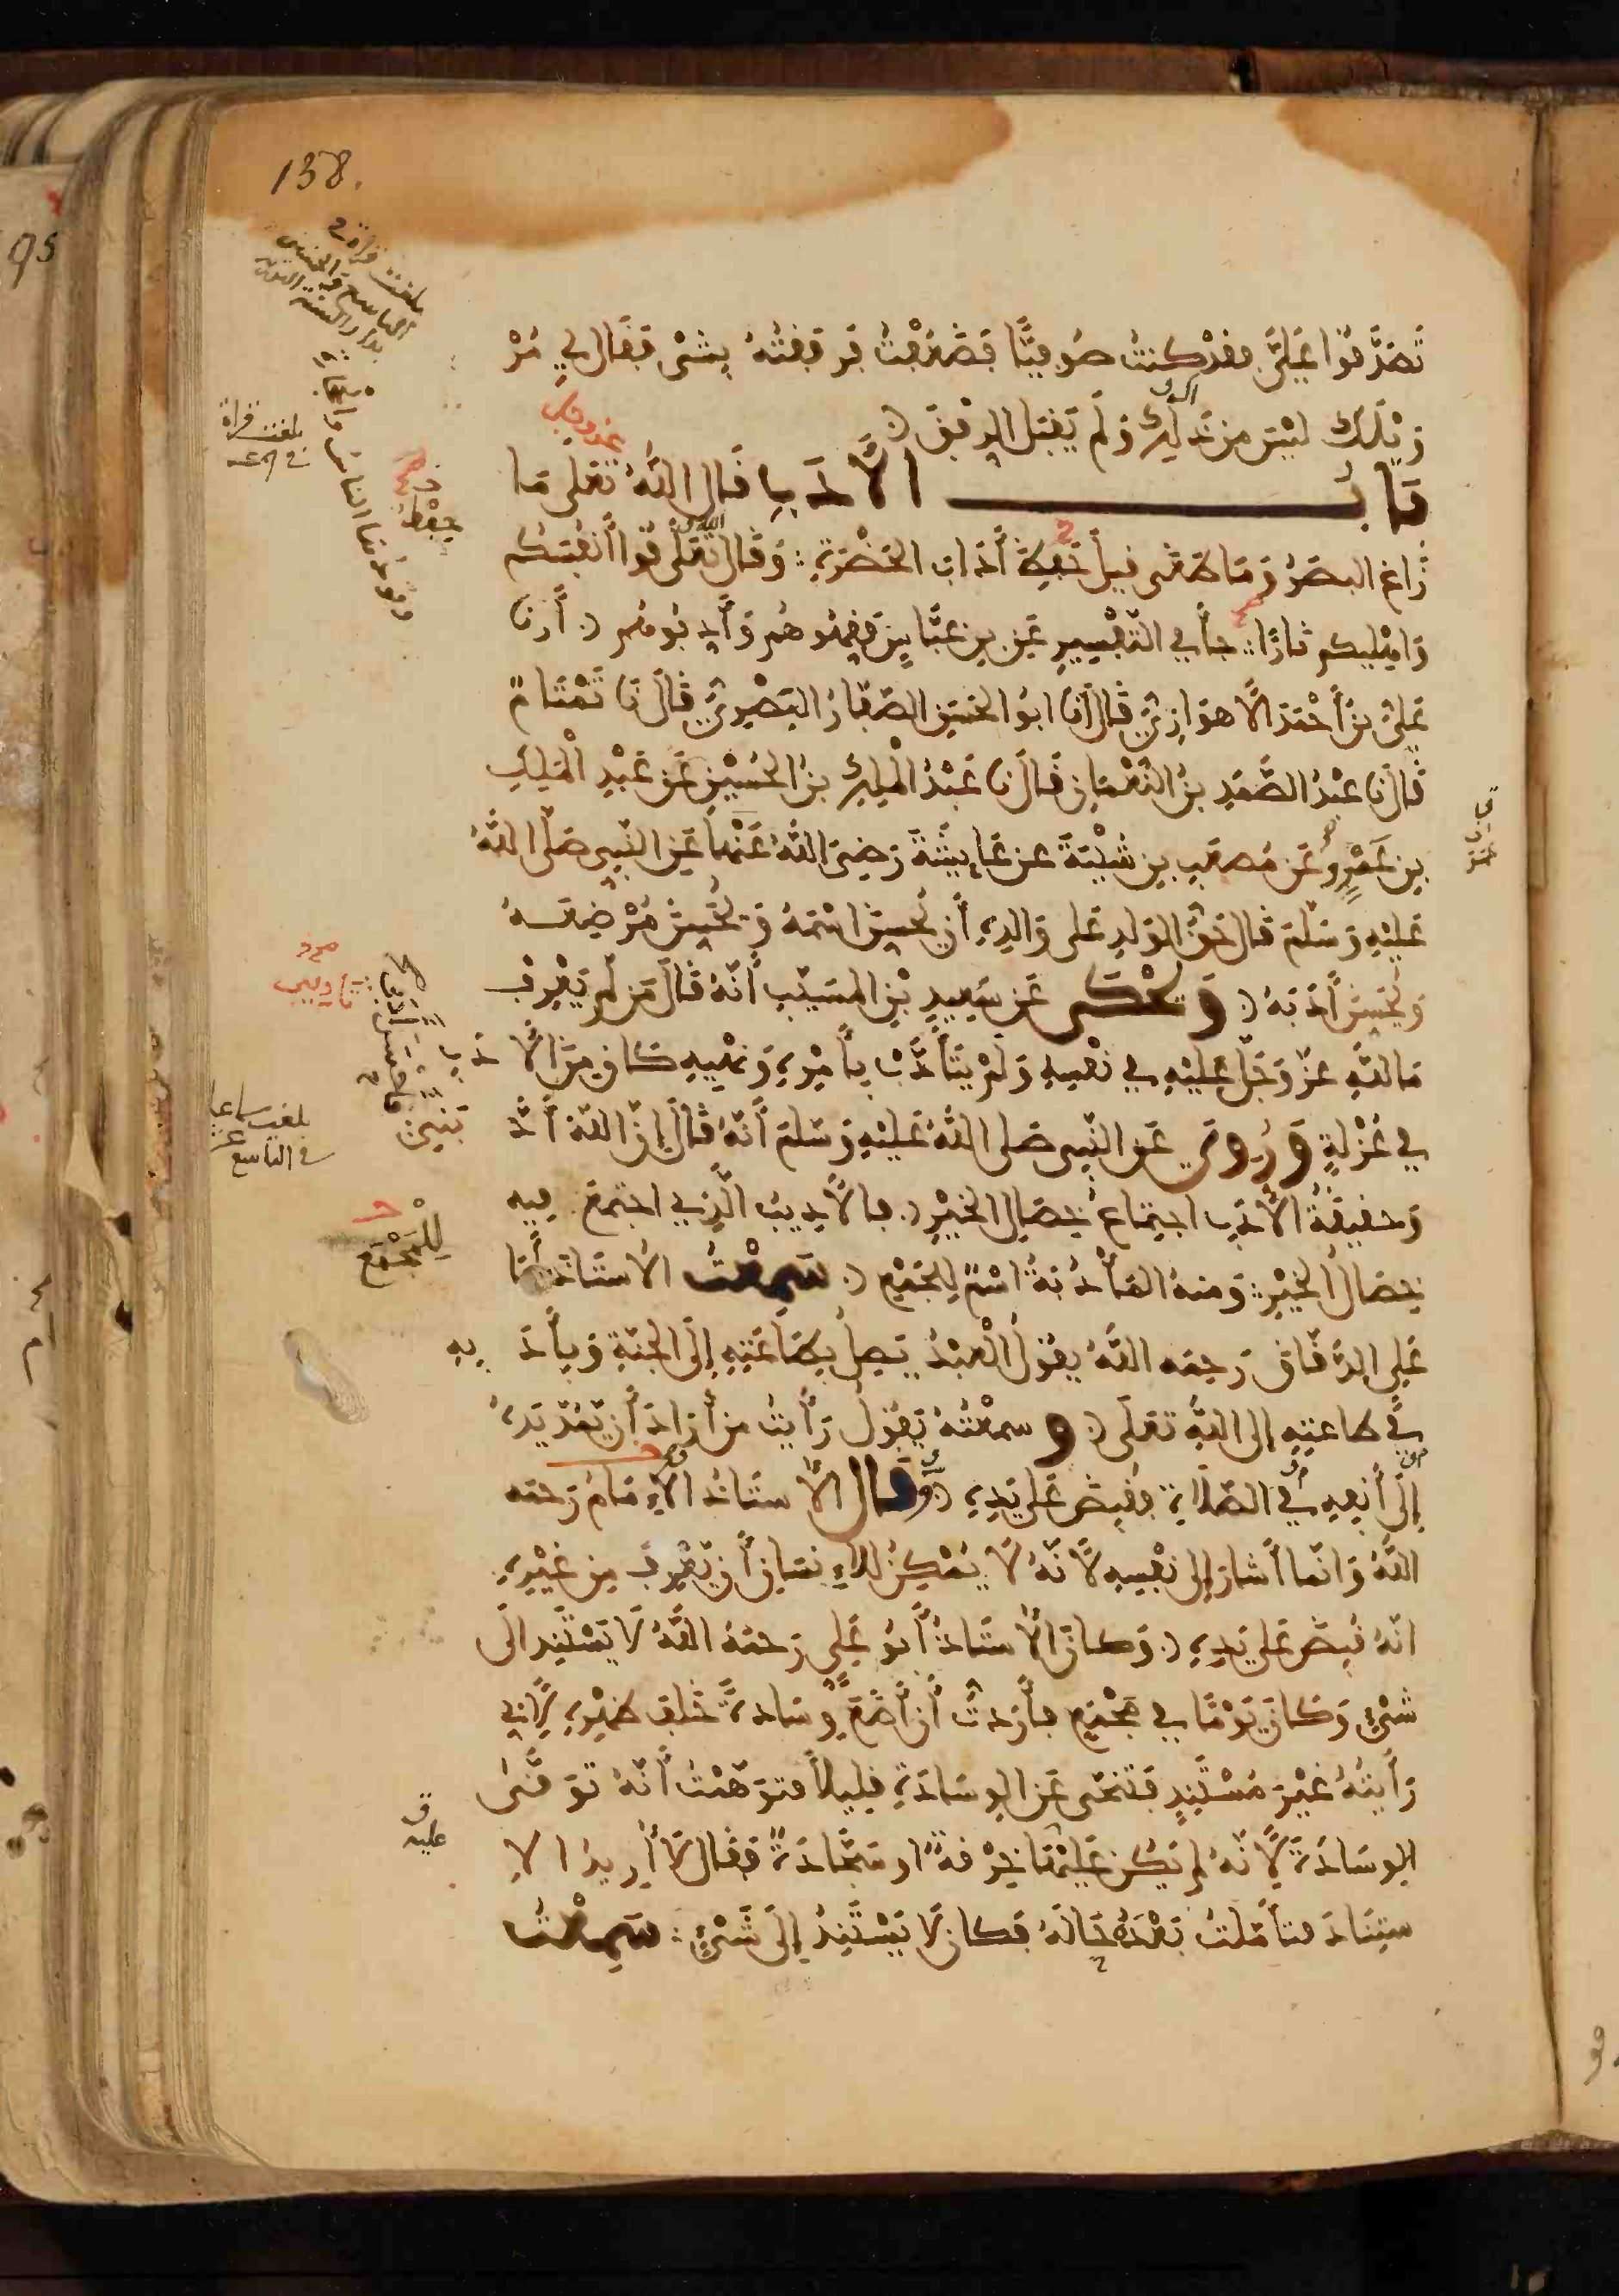 138.
تَصَدَّقُوا عَلَيَّ فقدْ كنتُ صُوفيًّا فَضَعُفْتُ فَرفقتُهُ بِشىءٍ فقال لي مُرْ
وَيْلَكَ ليْسَ مِن ذَلِكَ وَلَمْ يَقبَل الرِفقَ
بَابُ الأَدَبِ قَال اللَّهُ تَعَلى مَا
زَاغ البصَرُ وَمَا طَغَى قيلَ حَفِظَ أَدَابَ الحَضْرَةِ وَقَالَ تَعَلَى قُوا أَنفُسَكم
وَاهْلِيكم نَارًا جاءَ في التَفْسِيرِ عَنِ بنِ عبَّاسٍ فَقِّهُوهُم وَأَدِّبُوهُم أَرنا
عَليُّ بنُ أَحْمَدَ الأَهوَازِيُّ قَالَ أَنَا ابوُ الحَسَنِ الصَفّارُ البَصْرِيُّ قَالَ نَا تَمْتَامٌ
قَالَ نَا عبْدُ الصَّمَدِ بنُ النُعْمَانِ قَالَ نَا عَبْدُ الْمَلِكِ بنُ الحُسَيْنِ عَن عَبْدِ الْمَلِكِ
بنِ عُمَيْرٍ عَن مُصعَبِ بنِ شَيْبَةَ عن عَائِشَةَ رَضِيَ اللَّهُ عَنْهَا عَنِ النَّبِي صَلَّى اللَّهُ
عَلَيْهِ وَسَلَّمَ قَال حَقُّ الوَلَدِ عَلى وَالِدِهِ أَن يُحسِنَ اسْمَهُ وَيُحْسِنَ مُرْضِعَهُ
وَيُحْسِنَ أَدَبَهُ وَيُحْكَى عَن سَعِيدِ بْنِ المسَيّبِ أَنّهُ قَالَ مَن لَم يَعْرِفْ
مَا للَّهِ عزّ وَجَلَّ عَلَيْهِ في نَفْسِهِ وَلَمْ يَتَأَدَّبْ بِأَمْرِهِ وَنَهْيِهِ كَانَ مِنَ الأَدَبِ
في عُزْلَةٍ وَرُوِيَ عَنِ النَّبِي صَلى اللَّهُ عَلَيْهِ وَسَلمَ أَنّهُ قَالَ إِنَّ اللَّهَ أَدَّ
وَحقيقةُ الأَدَبِ اجتِمَاعُ خِصَالِ الخَيْرِ فالأَدِيبُ الَّذِي اجتمعَ فيه
خِصَالُ الخَيْرِ وَمنهُ المأْدُبَةُ اسْمٌ لِلجَمْعِ سَمِعْتُ الأُستَاذَ أَبَا
عَلى الدَّقَّاقَ رَحِمَه اللَّهُ يقُولُ الْعَبْدُ يَصِلُ بِطَاعَتِهِ إِلَى الجنّةِ وَبِأَدَبِهِ
في طاعتِهِ إِلى اللَّهِ تعَلَى وسمعْتُهُ يَقُولُ رَأَيتُ مَن أَرَادَ أَن يَمُدَّ يَدهُ
إِلَى أَنفِهِ في الصَّلاَةِ فقُبِضَ عَلى يَدِهِ وَقال الأُستاذُ الإِمَامُ رَحمَه
اللَّهُ وَانّما أَشَارَ إِلى نَفْسِهِ لأَنّهُ لاَ يُمْكِنُ للإِنسَانِ أَن يَعْرِفَ مِن غَيْرِهِ
انّهُ قُبِضَ عَلى يَدِهِ وَكانَ الأُستَاذُ أَبُو عَلِي رَحمَهُ اللَّهُ لاَ يَسْتَنِد الَى
شَىْءٍ وَكَانَ يَوْمًا في مَجْمَعٍ فأَرَدتُ أَن أَضَعَ وِسَادَةً خَلفَ ظَهْرِهِ لأَني
رَأَيتُهُ غَيْرَ مُسْتَنِدٍ فَتَنَحَّى عَنِ الوِسَادَةِ قلِيلاً فتوَهَّمْتُ أَنّهُ تَوَقَّى
الوِسَادَةَ لأَنّهُ لم يَكُن عَلَيْهَا خِرْقةٌ او سَجّادَةٌ فقَال لاَ أُرِيدُ الا
سْتِنَادَ فتأَمّلتُ بَعْدَهُ حَالَهُ فكان لاَ يَسْتَنِدُ إِلَى شَىْءٍ سَمِعْتُ
بلغت قراة
بلغت سماعا
في التاسع
لِلْمَجْمَعِ
عليه